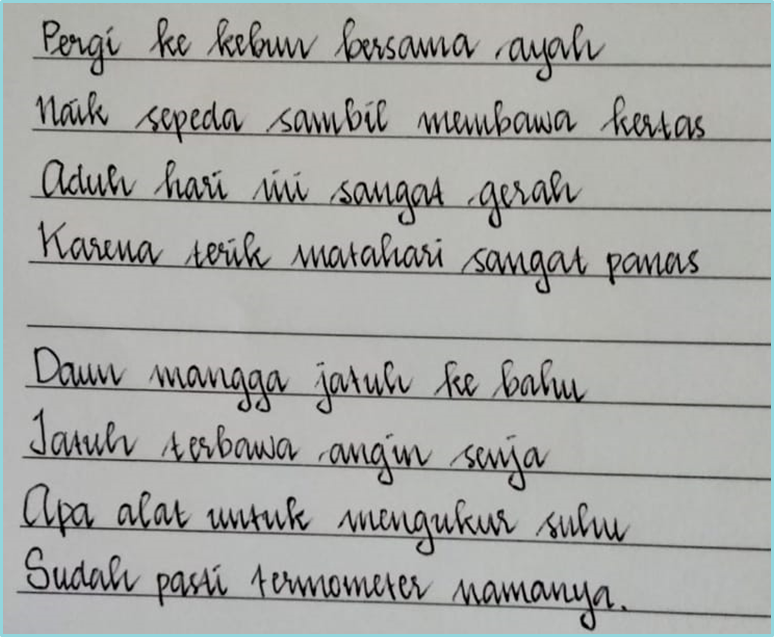 Pergi ke kebun bersama ayah
Naik sepeda sambil membawa kertas
Aduh hari ini sangat gerah
Karena terik matahari sangat panas
Daun mangga jatuh ke bahu
Jatuh terbawa angin senja
Apa alat untuk mengukur suhu
Sudah pasti termometer namanya.